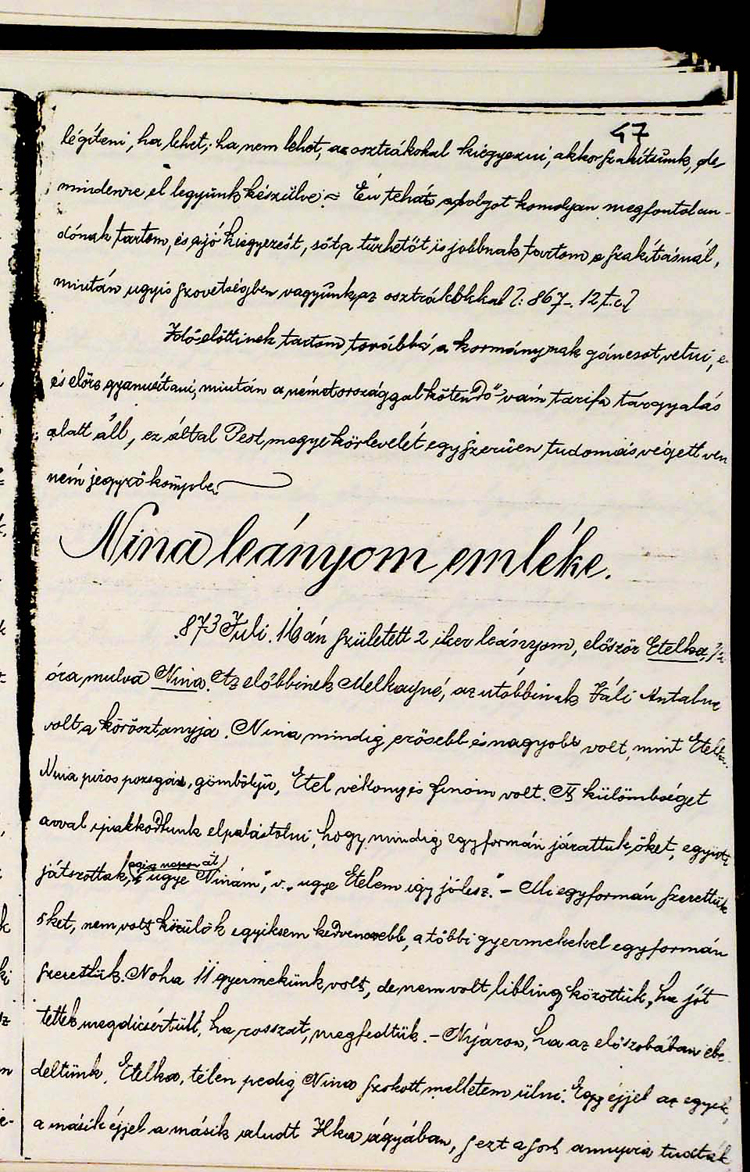 47
légíteni, ha lehet; ha nem lehet, az osztrákokal kiegyezni, akkor szakítsunk, de
mindenre el legyünk készülve = Én tehát a dolgot komolyan megfontolan-
dónak tartom, és a jó kiegyezést, sőt a tűrhetőt is jobbnak tartom a szakításnál,
miután ugyis szövetségben vagyunk az osztrákokkal [: 867- 12 t.c.]
Idő előttinek tartom továbbá a kormánynak gáncsot vetni,
és előre gyanusítani, miután a németországgal kötendő vám tarifa tárgyalás
alatt áll, ez által Pest megye körlevelét egyszerüen tudomás végett ven
ném jegyzőkönyvbe
Nina leányom emléke.
873 Juli. 16án született 2 iker leányom, először Etelka, 1/2
óra mulva Nina. Az előbbinek Melkayné, az utóbbinak Váli Antalné
volt a körösztanyja. Nina mindig erősebb és nagyobb volt, mint Etel
Nina piros pozsgás, gömbölyü, Etel vékony és finom volt. A külömbséget
azval ipakkodtunk elpalástolni, hogy mindig egyformán járattuk őket, együtt
játszottak, egész napon át "ugye Ninám", v. "ugye Etelem igy jó lesz." - Mi egyformán szerettük
őket, nem volt közülök egyiksem kedvencebb, a többi gyermekekel egyformán
szerettük. Noha 11 gyermekünk volt, de nem volt libling közöttük, ha jót
tettek megdicsértük, ha rosszat, megfedtük. - Nyáron, ha az előszobában ebé-
deltünk, Etelka, télen pedig Nina szokott melletem ülni. Egy éjjel az egyik,
a másik éjjel a másik aludt Ilka ágyában, s ezt a sort annyira tudták